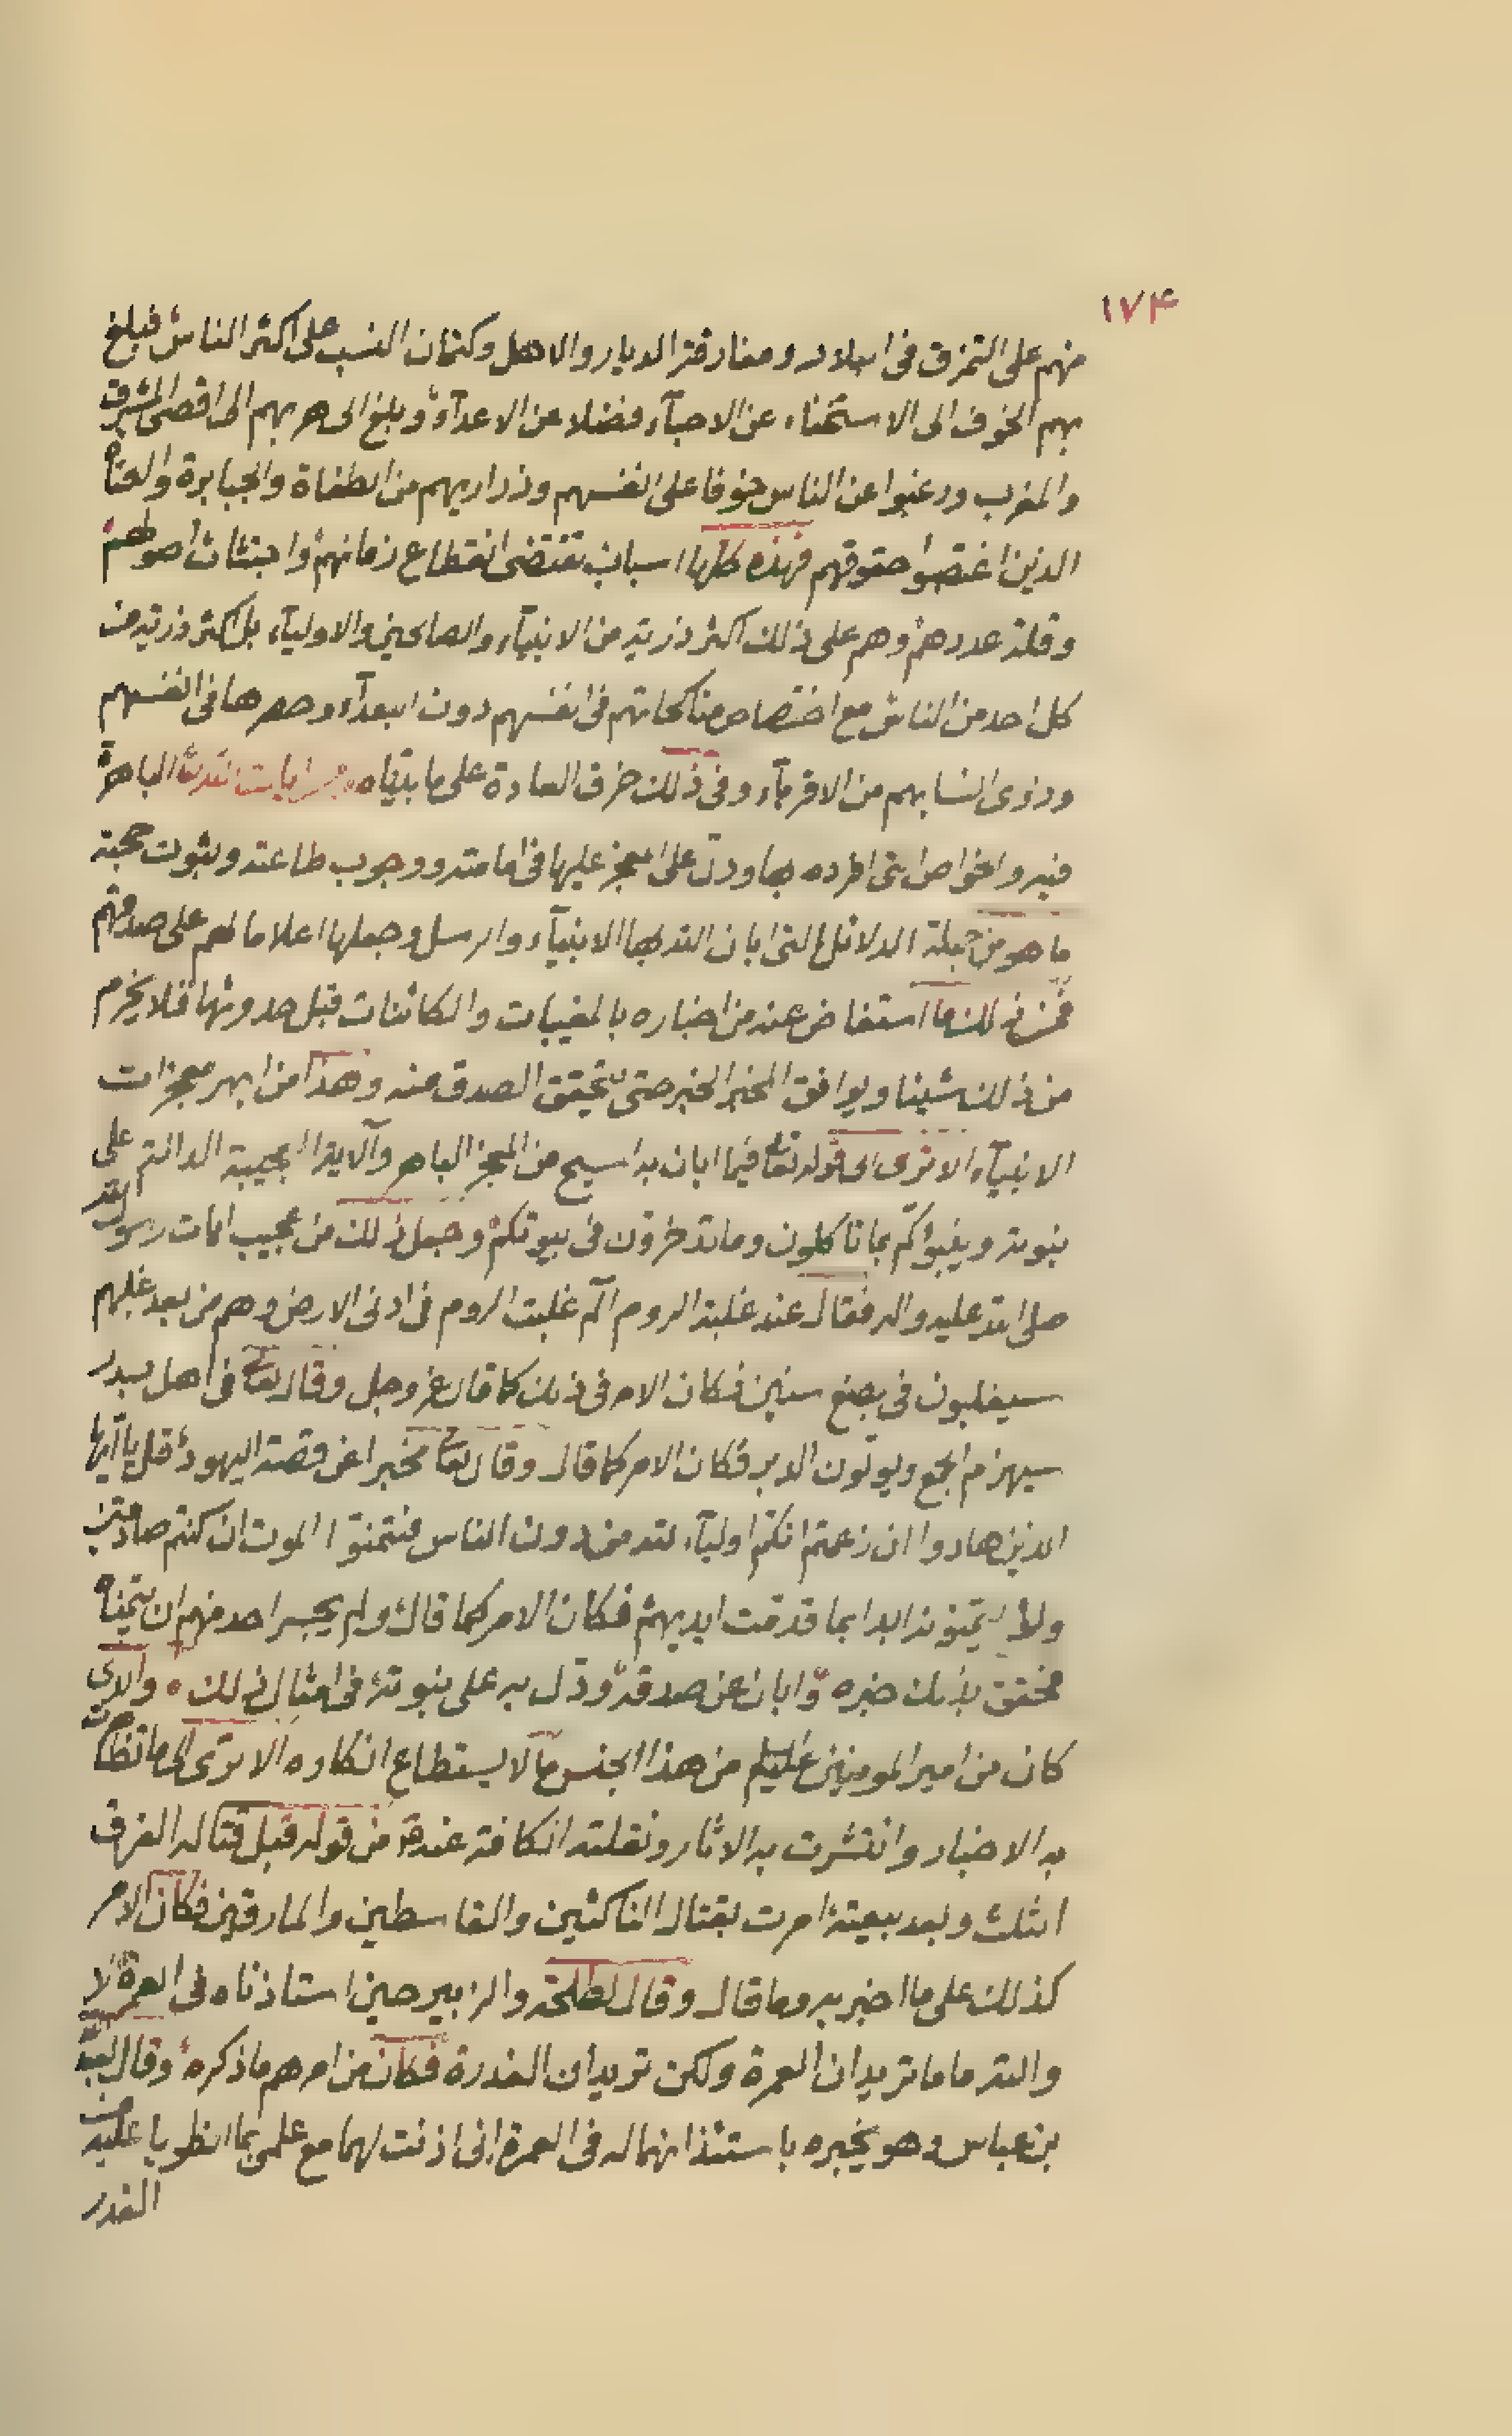 ١٧۴
منهم على التمزق فى البلاد ومفارقة الديار والاهل وكتمان النسب على اكثر الناس فبلغ
بهم الخوف الى الاستخفاء عن الاحبآء فضلا عن الاعدآء وبلغ الى هربهم الى اقصى المشرق
والمغرب ورغبوا عن الناس خوفا على انفسهم وذراريهم من الطغاة والجبابرة والعتاة
الذين اغتصبوا حقوقهم فهذه كلها اسباب تقتضى انقطاع زمانهم واجتثاث اصولهم
وقلة عددهم وهم على ذلك اكثر ذرية من الانبيآء والصالحين والاوليآء بل اكثر ذرية من
كل احد من الناس مع اختصاص مناكحاتهم فى انفسهم دون البعدآء وحصرها فى انفسهم
وذوى انسابهم من الاقربآء وفى ذلك خرق العادة على ما بيناه ومن ايات الله الباهرة
فيه والخواص التى افرده بها ودل على المعجز عليها فى امامته ووجوب طاعته وثبوت حجته
ما هو من جملة الدلائل التى ابان الله بها الانبيآء والرسل وجعلها اعلاما لهم على صدقهم
فمن ذلك ما استفاض عنه من اخباره بالمغيبات والكائنات قبل حدوثها فلا يخرم
من ذلك شيئا ويوافق المخبر الخبر حتى يتحقق الصدق منه وهذا من ابهر معجزات
الانبيآء الا ترى الى قوله تعالى فيما ابان به المسيح من المعجز الباهر والاية العجيبة الدالة على
نبوته وينبؤاكم بما تاكلون وما تدخرون فى بيوتكم وجعل ذلك من عجيب ايات رسول الله
صلى الله عليه واله فقال عند غلبة الروم الم غلبت الروم فى ادنى الارض وهم من بعد غلبهم
سيغلبون فى بضع سنين فكان الامر فى ذلك كما قال عز وجل وقال تعالى فى اهل بدر
سيهزم الجمع ويولون الدبر فكان الامر كما قال وقال تعالى مخبرا عن قصة اليهود قل يا ايها
الذين هادوا ان زعمتم انكم اوليآء لله من دون الناس فتمنوا الموت ان كنتم صادقين
ولا يتمنونه ابدا بما قدمت ايديهم فكان الامر كما قال ولم يجسر احد منهم ان يتمناه
فحقق بذلك خبره وابان عن صدقه ودل به على نبوته فى امثال ذلك والذى
كان من امير المومنين عليه السلم من هذا الجنس ما لا يستطاع انكاره الا ترى الى ما تظاهرت
به الاخبار وانتشرت به الاثار ونقلته الكافة عنه من قوله قبل قتاله الفرق
الثلث وبعد بيعته امرت بقتال الناكثين والقاسطين والمارقين فكان الامر
كذلك على ما اخبر به وما قال وقال لطلحة والزبير حين استاذناه فى العمرة لا
والله ما ما تريدان العمرة ولكن تريدان الغدرة فكان من امرهم ما ذكره وقال لعبد الله
بن عباس وهو يخبره باستئذانهما له فى العمرة انى اذنت لهما مع علمى بما انطويا عليه من
الغدر